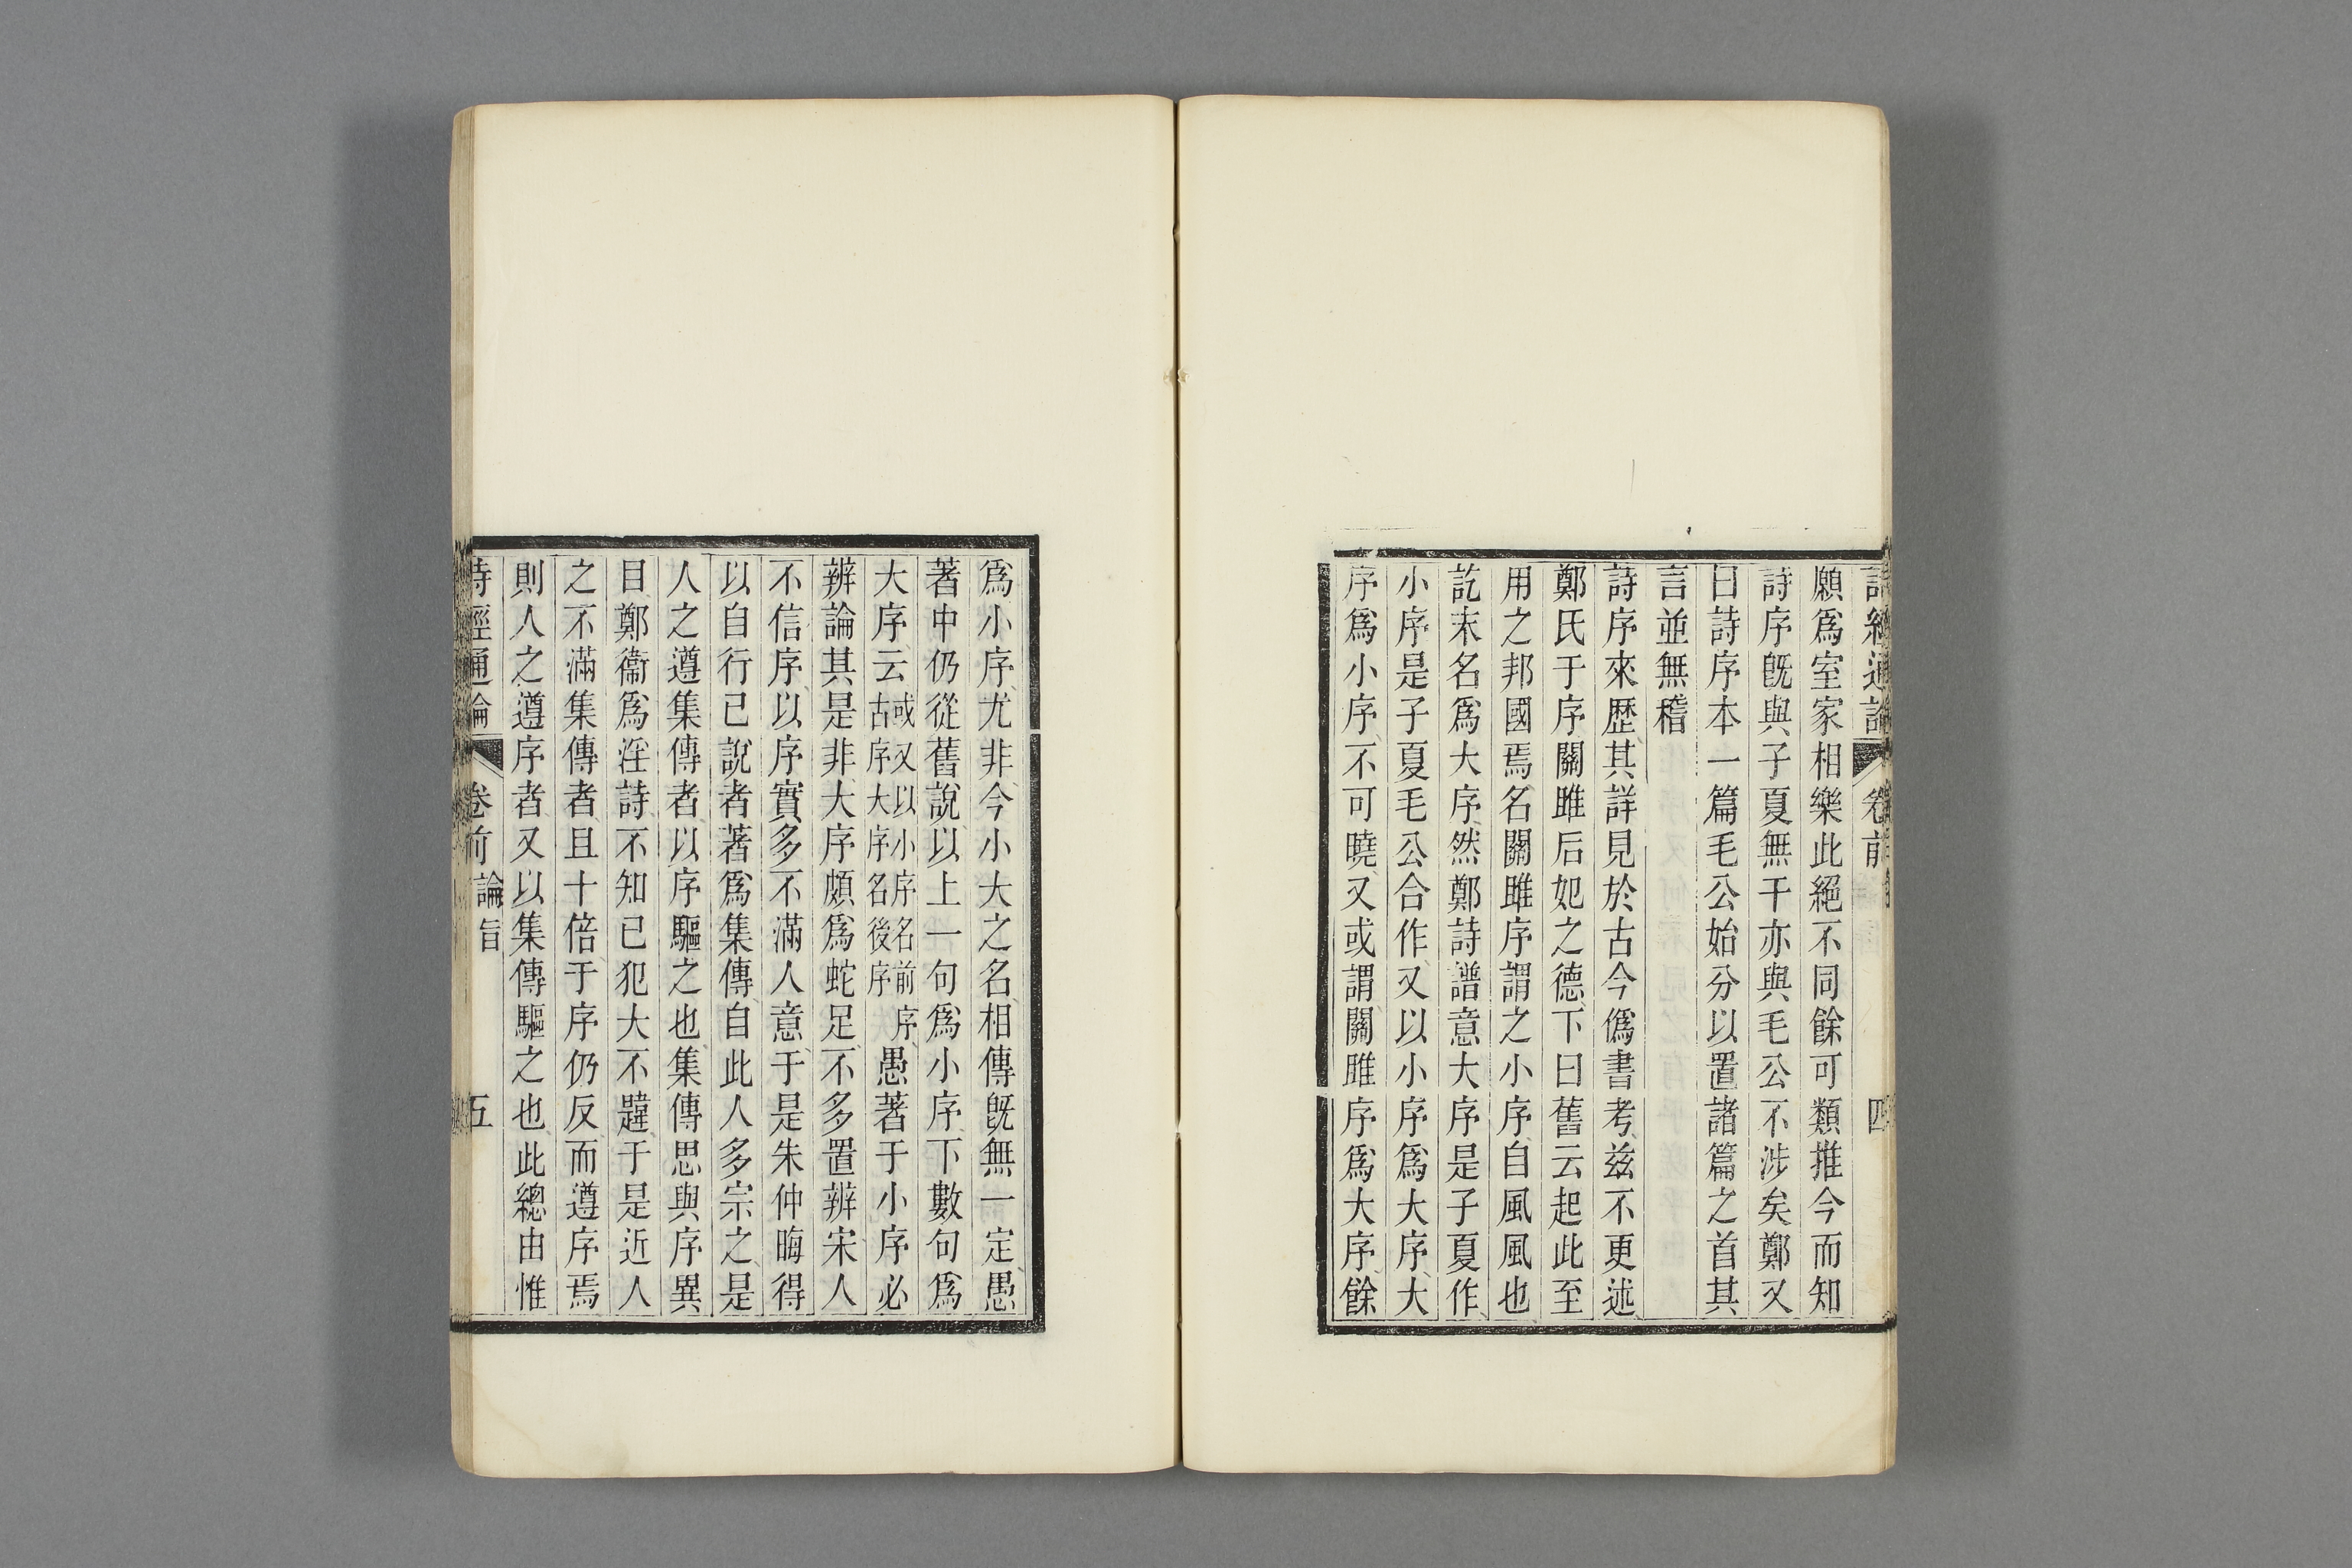 詩經通論 卷前 四
願爲室家相樂此絕不同餘可類推今而知
詩序旣與子夏無干亦與毛公不涉矣鄭又
曰詩序本一篇毛公始分以置諸篇之首其
言並無稽
詩序來歷其詳見於古今僞書考兹不更述
鄭氏于序關雎后妃之德下曰舊云起此至
用之邦國焉名關雎序謂之小序自風風也
訖末名爲大序然鄭詩譜意大序是子夏作
小序是子夏毛公合作又以小序爲大序大
序爲小序不可曉又或謂關雎序爲大序餘
爲小序尤非今小大之名相傳旣無一定愚
著中仍從舊說以上一句爲小序下數句爲
大序云或又以小序名前序古序大序名後序愚著于小序必
辨論其是非大序頗爲蛇足不多置辨宋人
不信序以序實多不滿人意于是朱仲晦得
以自行己說者著爲集傳自此人多宗之是
人之遵集傳者以序驅之也集傳思與序異
目鄭衞爲淫詩不知已犯大不韙于是近人
之不滿集傳者且十倍于序仍反而遵序焉
則人之遵序者又以集傳驅之也此總由惟
詩經通論 卷前 論旨 五